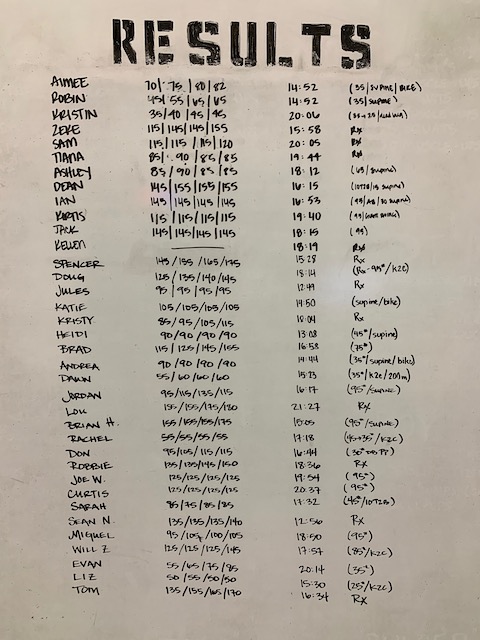 RESULTS
AIMEE 70/75/80/82 14:52 (35/SUPINE/BIKE)
ROBIN 45/55/65/65 14:52 (35/SUPINE)
KRISTIN 35/40/45/45 20:06
ZEKE 115/145/145/155 15:58 Rx
SAM 115/115/115/120 20:05 Rx
TIANA 85/90/85/85 19:44 Rx
ASHLEY 85/90/85/85 18:12 (65/SUPINE)
DEAN 145/155/155/155 16:15
IAN 145/145/145/145 16:53
KURTIS 115/115/115/115 19:40
JACK 145/145/145/145 18:15 (95)
KELLEN — 18:19 Rx
SPENCER 145/155/165/175 15:28 Rx
DOUG 125/135/140/145 18:14 (Rx-95#/K2C)
JULES 95/95/95/95 12:49 Rx
KATIE 105/105/105/105 14:50 (supine/bike)
KRISTY 85/95/105/115 Rx
HEIDI 90/90/90/90 13:08 (45#/supine)
BRAD 115/125/145/155 16:58 (75#)
ANDREA 90/90/90/90 14:44 (35#/supine/bike)
DAWN 55/60/60/60 15:23 (35#/K2C/200m)
JORDAN 95/115/135/115 16:17 (95#/SUPINE)
LOU 155/155/175/180 21:27 Rx
BRIAN H. 155/155/155/175 15:05 (95#/SUPINE)
RACHEL 55/55/55/55 17:18 (45→35#/K2C)
DON 95/105/115/115 16:44
ROBBIE 135/135/145/150 18:36 Rx
JOE W. 125/125/125/125 19:54 (95#)
CURTIS 125/125/125/125 20:37 (95#)
SARAH 85/75/85/85 17:32
SEAN N. 135/135/135/140 12:56 Rx
MIGUEL 95/105/100/105 18:50 (95#)
WILL Z 125/125/125/145 17:57 (85#/K2C)
EVAN 55/65/75/85 20:14 (35#)
LIZ 50/55/50/50 15:30 (25#/K2C)
TOM 135/155/165/170 16:34 Rx